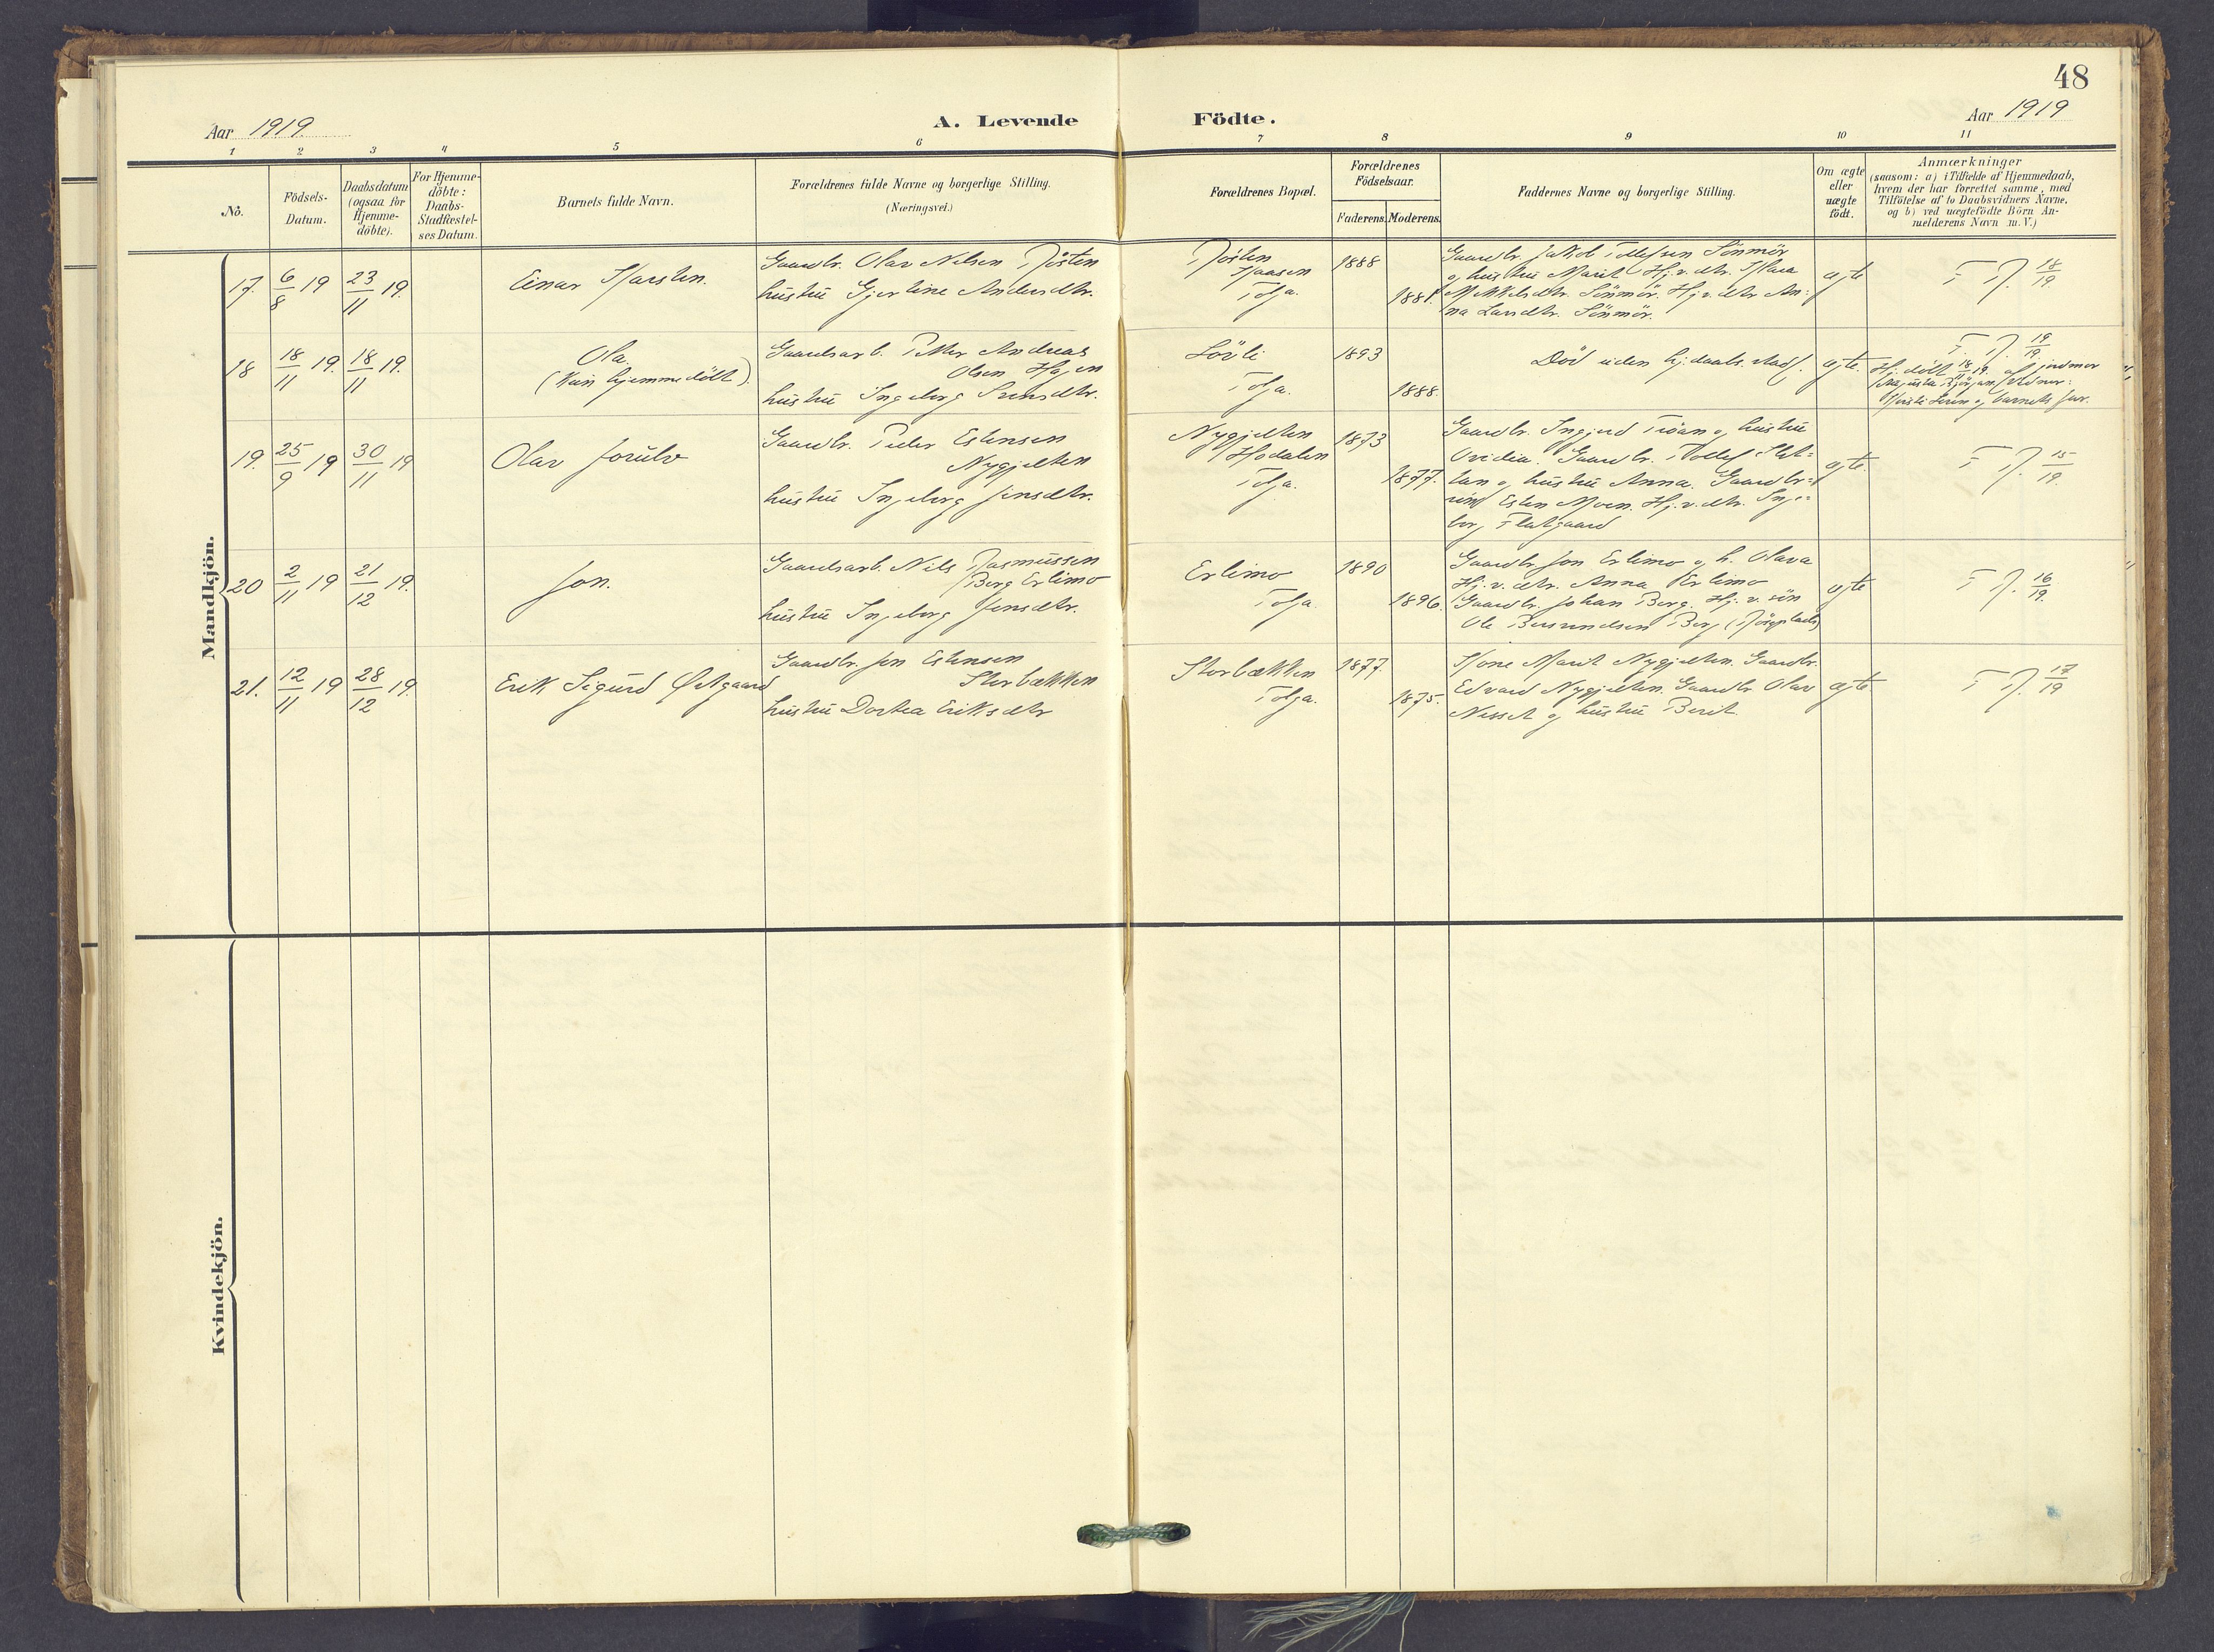 48
Aar 1919. A. Levende Födte. Aar 1919
1 2 3 4 5 6 7 8 9 10 11
No.
Födsels-
Datum.
Daabsdatum
(ogsaa for
Hjemme-
döbte).
For Hjemme-
döbte:
Daabs-
Stadfæstel-
ses Datum.
Barnets fulde Navn.
Forældrenes fulde Navne og borgerlige Stilling.
(Næringsvei.)
Forældrenes Bopæl.
Forældrenes
Födselsaar.
Faderens. Moderens.
Faddernes Navne og borgerlige Stilling.
Om ægte
eller
uægte
födt.
Anmærkninger
(saasom: a) i Tilfælde af Hjemmedaab,
hvem der har forrettet samme, med
Tilföielse af to Daabsvidners Navne,
og b) ved uægtefödte Börn An-
melderens Navn m. V.)
Mandkjön.
17. 6/8 19 23/11 19.
Einar Karsten.
Gaardbr. Olav Nilsen Røsten
hustru Gjertine Andersdtr.
Røsten
Haasen
Tolga.
1888
1881.
Gaardbr. Jakob Tollefsen Sönmör
og hustru Marit. Hj.v.dtr. Klara
Mikkelsdtr. Sönmör. Hj.v.dtr. An-
na Larsdtr. Sönmör.
ægte
F. R. 18/19
18 18/11 19. 18/11 19.
Ola.
(Kun hjemmedöbt).
Gaardsarb. Petter Andreas
Olsen Hagen
hustru Ingeborg Svensdtr.
Lövli
Tolga.
1893
1888.
Död uden hj.daabs stadf.
ægte.
F. R. 19/19.
Hj. döbt 18/11 19. af jordmor
og barnets far.
19. 25/9 19 30/11 19
Olav Jorulv
Gaardbr. Peder Estensen
Nygjelten
hustru Ingeborg Jensdtr.
Nygjelten
Hodalen
Tolga.
1873
1877.
Gaardbr. Ingjerd Troan og hustru
Ovidia. Gaardbr. Tollef Slet-
tan og hustru Anna. Gaardbr.
Esten Moen. Hj.v.dtr. Inge-
borg Flatgaard
ægte.
F. R. 15/19.
20 2/11 19 21/12 19.
Jon.
Gaardsarb. Nils Rasmussen
Berg Erlimo
hustru Ingeborg Jonsdtr.
Erlimo
Tolga.
1890
1896.
Gaardbr. Jon Erlimo og h. Olava
Hj.v.dtr. Anna Erlimo
Gaardbr. Johan Berg. Hj.v. sön
Ole Berg
ægte
F. R. 16/19.
21. 12/11 19 28/12 19.
Erik Sigurd Östgaard
Gaardbr. Jon Estensen
Storbækken
hustru Dortea Eriksdtr
Storbækken
Tolga.
1877.
1875.
Kone Marit Nygjelten. Gaardbr.
Edvard Nygjelten. Gaardbr. Olav
Nesset og hustru Berit.
ægte
F. R. 17/19
Kvindekjön.